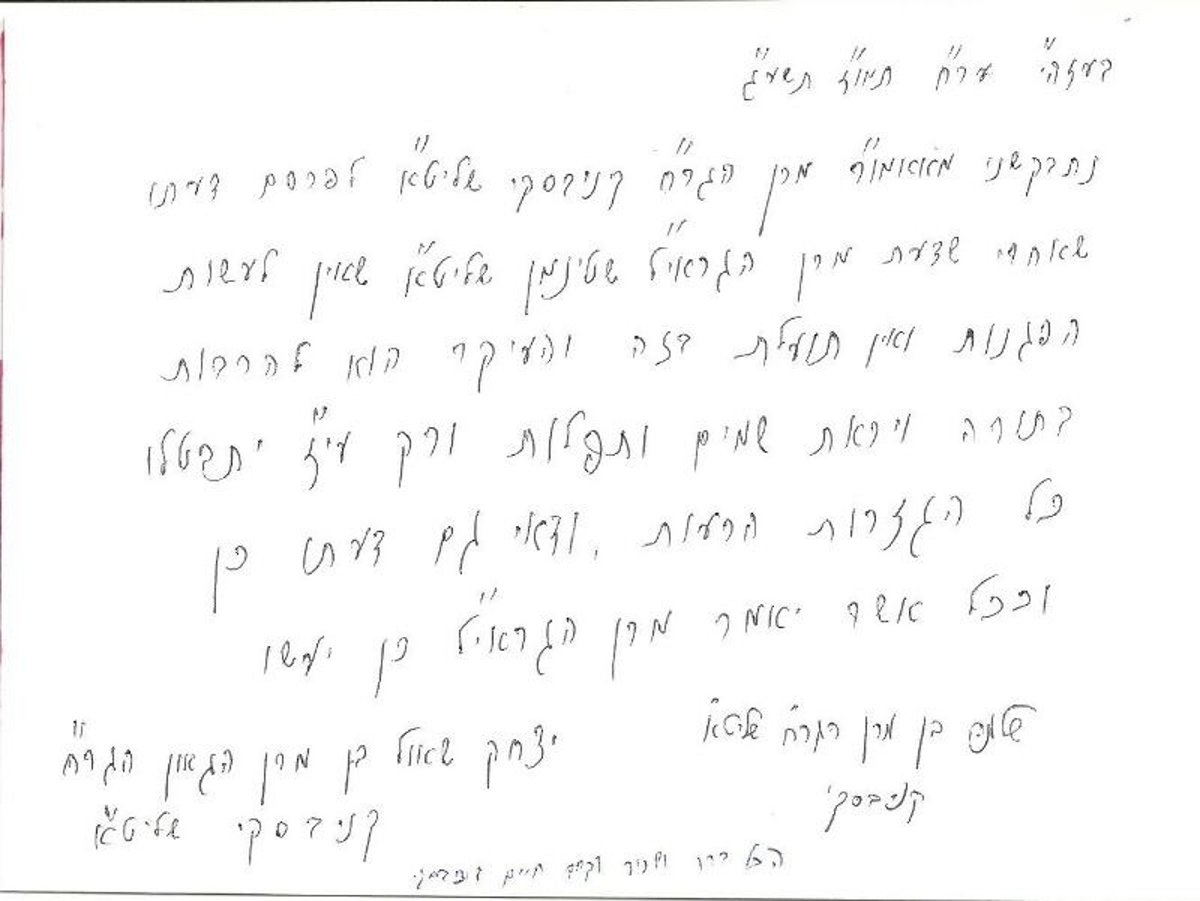 בעזהי״ ער״ח תמוז תשע״ג
נתבקשתי מאאמו״ר מרן הגר״ח קניבסקי שליט״א לפרסם דעתו
שאחרי שדעת מרן הגראי״ל שטינמן שליט״א שאין לעשות
הפגנות ואין תועלת בזה והעיקר הוא להרבות
בתורה ויראת שמים ותפלות ורק עי״ז יתבטלו
כל הגזרות הרעות, ודאי גם דעתו כן
וככל אשר יאמר מרן הגראי״ל כן יעשו
שלמה בן מרן הגר״ח שליט״א
קניבסקי
יצחק שאול בן מרן הגאון הגר״ח
קניבסקי שליט״א
הכל ברור ושריר וקים חיים קניבסקי